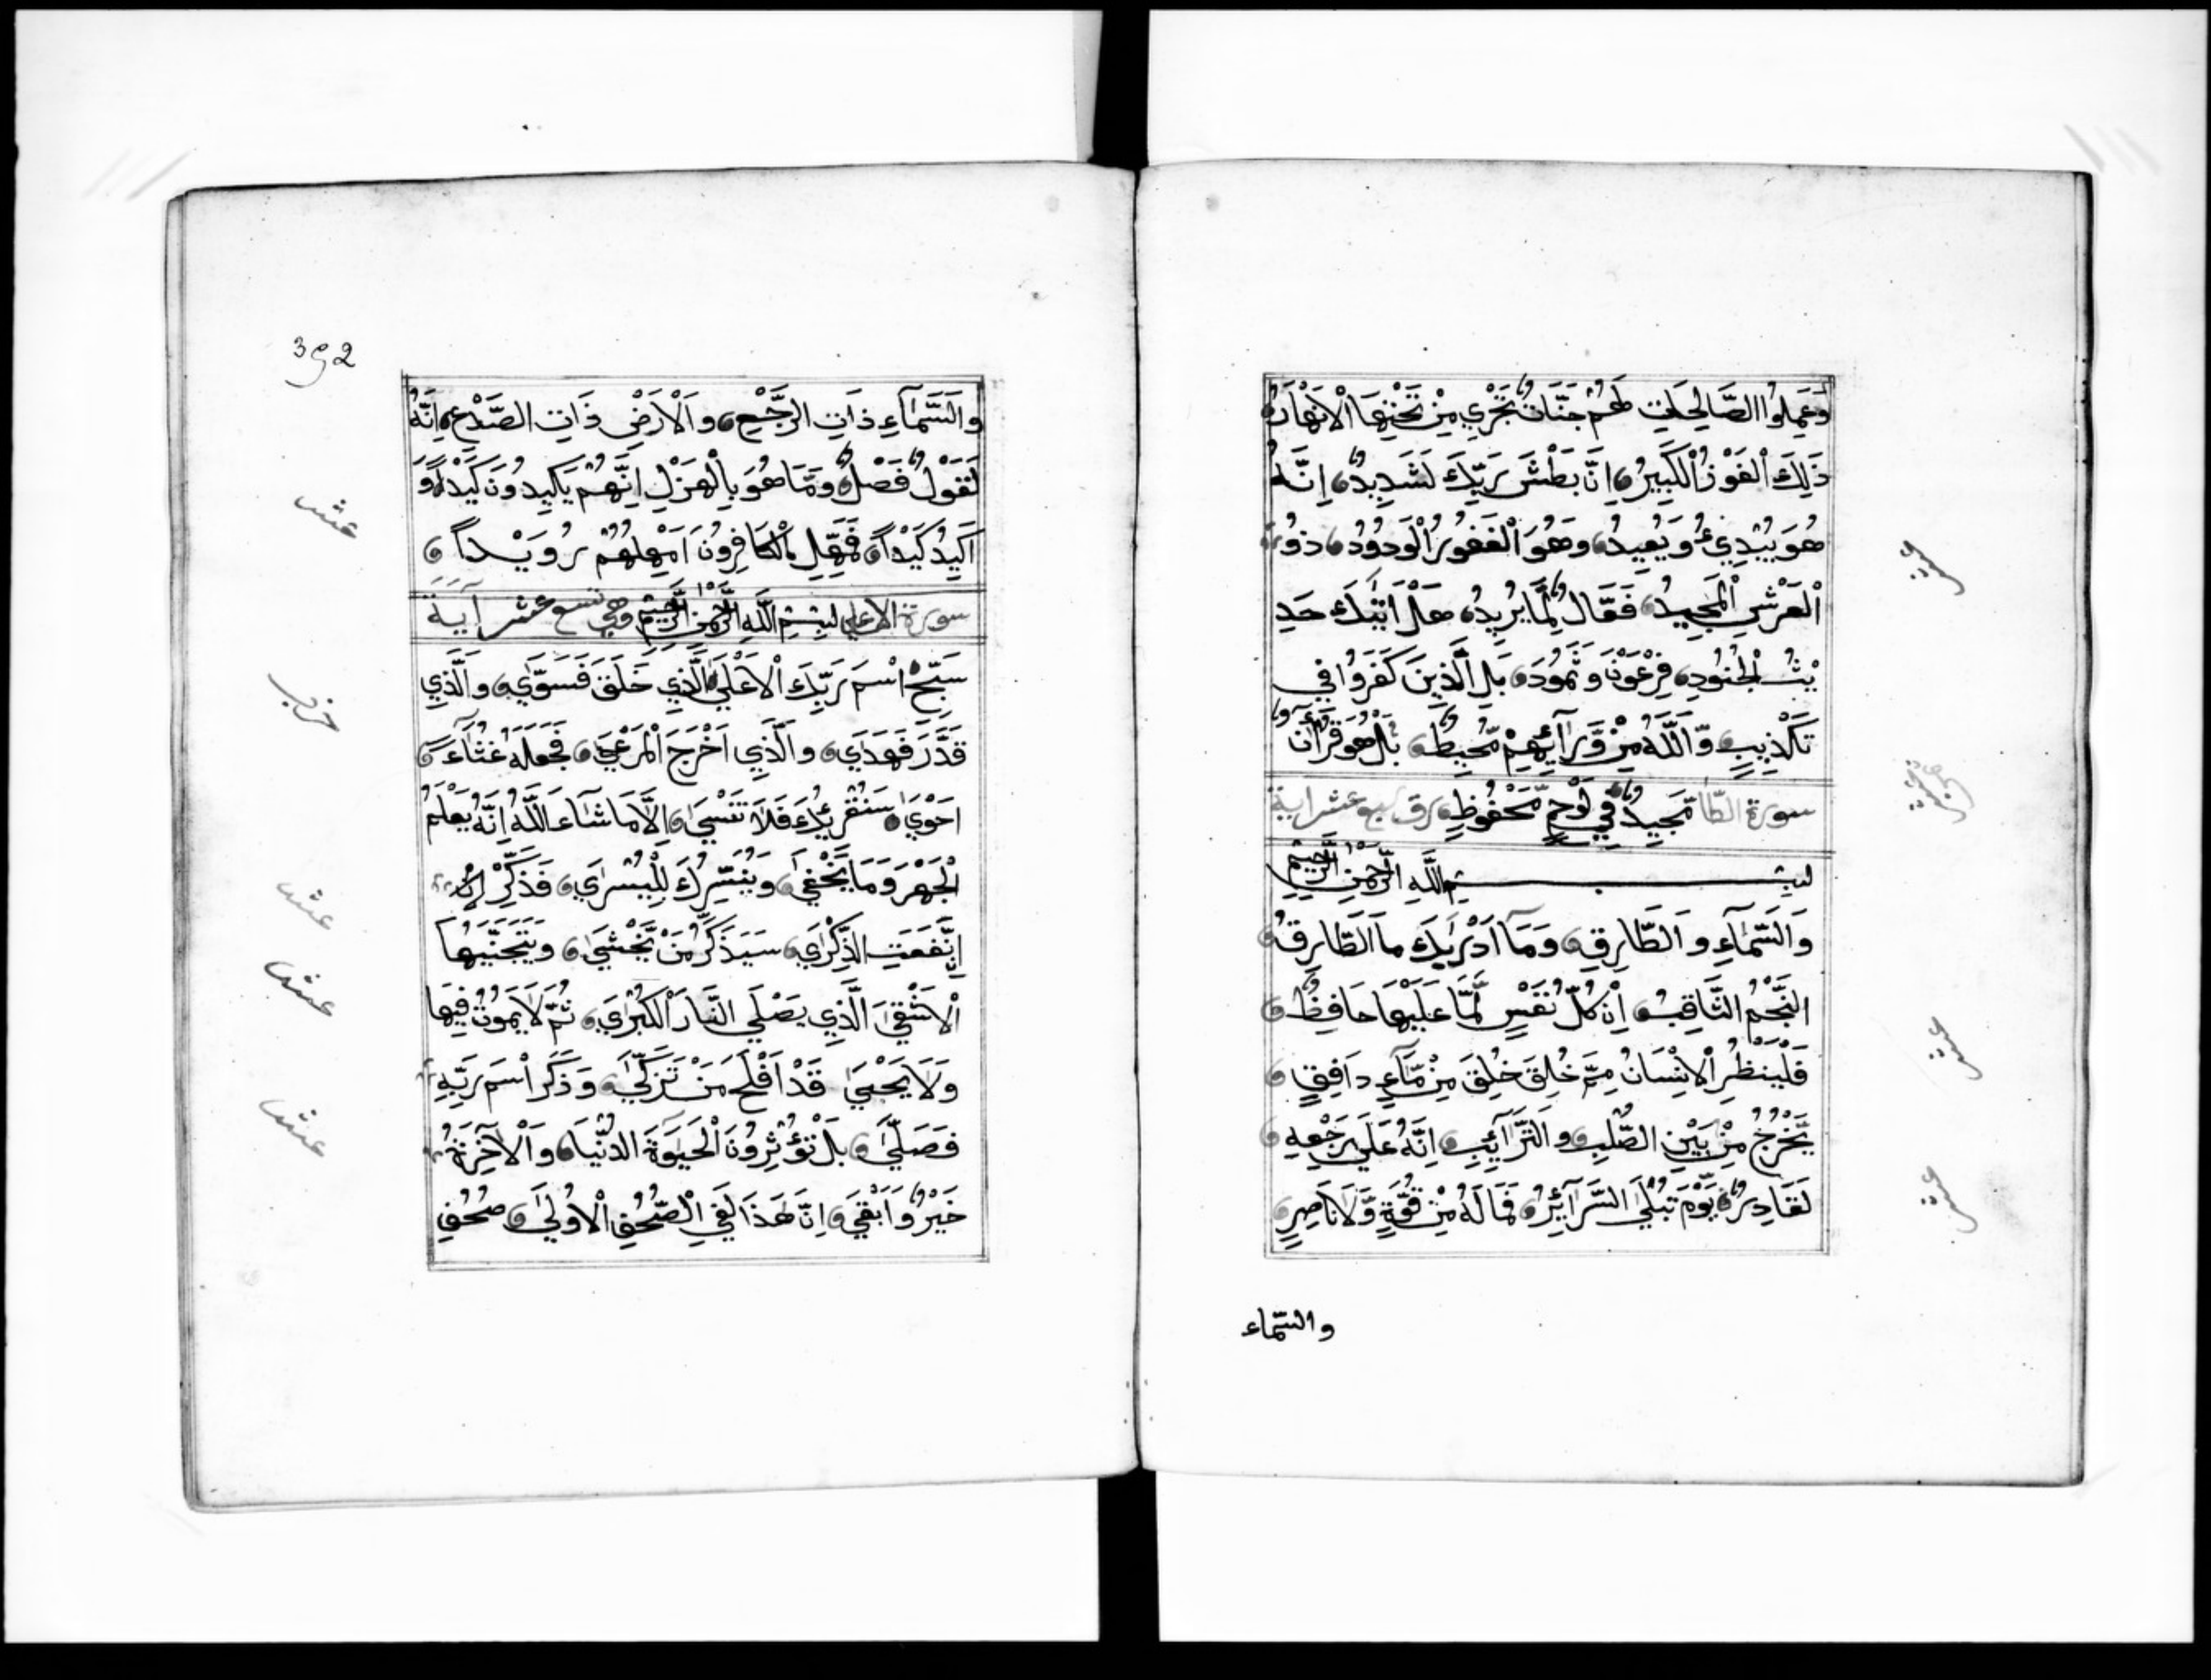 وَعَمِلُوا الصَّالِحَاتِ لَهُمْ جَنَّاتٌ تَجْرِي مِنْ تَحْتِهَا الْاَنْهَارُ
ذَلِكَ الْفَوْزُ الْكَبِيرُ اِنَّ بَطْشَ رَبِّكَ لَشَدِيدٌ اِنَّهُ
هُوَ يُبْدِئُ وَيُعِيدُ وَهُوَ الْغَفُورُ الْوَدُودُ ذُو
الْعَرْشِ الْمَجِيدُ فَعَّالٌ لِّمَا يُرِيدُ هَلْ اَتٰىكَ حَدِ
يْثُ الْجُنُودِ فِرْعَوْنَ وَثَمُودَ بَلِ الَّذِينَ كَفَرُوا فِي
تَكْذِيبٍ وَّاللَّهُ مِنْ وَّرَآئِهِمْ مُّحِيطٌ بَلْ هُوَ قُرْآنٌ
سورة الطا مَّجِيدٌ فِي لَوْحٍ مَّحْفُوظٍ رق سبع عشر اية
بِسْمِ اللَّهِ الرَّحْمٰنِ الرَّحِيمِ
وَالسَّمَآءِ وَالطَّارِقِ وَمَآ اَدْرٰىكَ مَا الطَّارِقُ
النَّجْمُ الثَّاقِبُ اِنْ كُلُّ نَفْسٍ لَّمَّا عَلَيْهَا حَافِظٌ
فَلْيَنْظُرِ الْاِنْسَانُ مِمَّ خُلِقَ خُلِقَ مِنْ مَّآءٍ دَافِقٍ
يَّخْرُجُ مِنْ بَيْنِ الصُّلْبِ وَالتَّرَآئِبِ اِنَّهُ عَلَى رَجْعِهِ
لَقَادِرٌ يَوْمَ تُبْلَى السَّرَآئِرُ فَمَا لَهُ مِنْ قُوَّةٍ وَّلَا نَاصِرٍ
والسّمَاء
عشر
عشر
عشر
392
وَالسَّمَآءِ ذَاتِ الرَّجْعِ وَالْاَرْضِ ذَاتِ الصَّدْعِ اِنَّهُ
لَقَوْلٌ فَصْلٌ وَّمَا هُوَ بِالْهَزْلِ اِنَّهُمْ يَكِيدُونَ كَيْدًا وَّ
اَكِيدُ كَيْدًا فَمَهِّلِ الْكَافِرُونَ اَمْهِلْهُمْ رُوَيْدًا
سورة الاعلى بِسْمِ اللَّهِ الرَّحْمٰنِ الرَّحِيمِ وهي تسع عشر آية
سَبِّحِ اسْمَ رَبِّكَ الْاَعْلَى الَّذِي خَلَقَ فَسَوّٰي وَالَّذِي
قَدَّرَ فَهَدٰي وَالَّذِي اَخْرَجَ الْمَرْعٰي فَجَعَلَهُ غُثَآءً
اَحْوٰي سَنُقْرِئُكَ فَلَا تَنْسٰي اِلَّا مَا شَآءَ اللَّهُ اِنَّهُ يَعْلَمُ
الْجَهْرَ وَمَا يَخْفٰي وَنُيَسِّرُكَ لِلْيُسْرٰي فَذَكِّرْ اِنْ
اِنْ نَّفَعَتِ الذِّكْرٰي سَيَذَّكَّرُ مَنْ يَّخْشٰي وَيَتَجَنَّبُهَا
الْاَشْقَى الَّذِي يَصْلَى النَّارَ الْكُبْرٰي ثُمَّ لَا يَمُوتُ فِيهَا
وَلَا يَحْيٰي قَدْ اَفْلَحَ مَنْ تَزَكّٰي وَذَكَرَ اسْمَ رَبِّهِ
فَصَلّٰي بَلْ تُؤْثِرُونَ الْحَيٰوةَ الدُّنْيَا وَالْآخِرَةُ
خَيْرٌ وَّاَبْقٰي اِنَّ هَذَا لَفِي الصُّحُفِ الْاُولٰي صُحُفِ
عشر
حزب
عشر
عشر
عشر